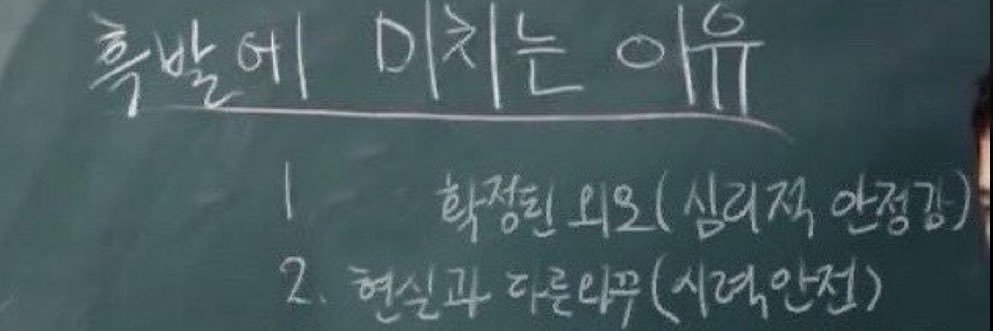 흑발에 미치는 이유
1 확정된 외모(심리적 안정감)
2. 현실과 다른외꾸(시력안전)